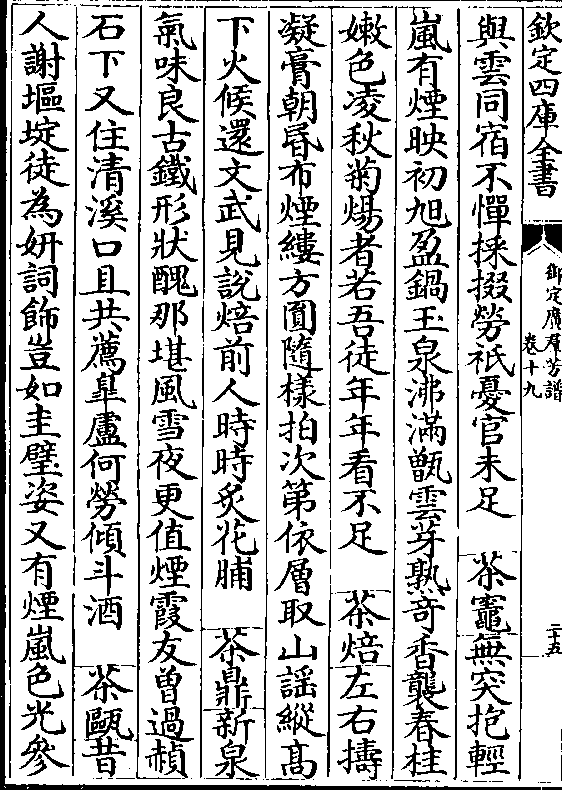 欽定四庫全書
御定廣羣芳譜
卷十九
二十五
與雲同宿不憚採掇勞祇憂官未足　茶竈無突抱輕
嵐有煙映初旭盈鍋玉泉沸滿甑雲芽熟竒香襲春桂
嫩色凌秋菊煬者若吾徒年年看不足　茶焙左右擣
凝膏朝昏布煙縷方圓隨樣拍次第依層取山謡縱髙
下火候還文武見説焙前人時時炙花脯　茶鼎新泉
氣味良古鐵形狀醜那堪風雪夜更值煙霞友曽過頳
石下又住清溪口且共薦臯盧何勞傾斗酒　茶甌昔
人謝塸埞徒為妍詞飾豈如圭璧姿又有煙嵐色光參